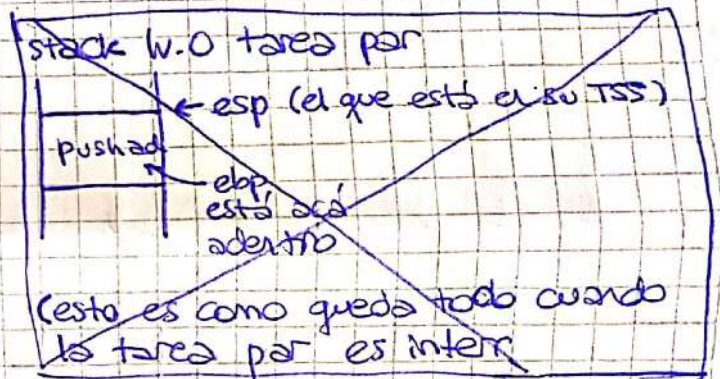 stack lv.0 tarea par
← esp (el que está en su TSS)
pushad
ebp
está acá
adentro
(esto es como queda todo cuando
la tarea par es interr